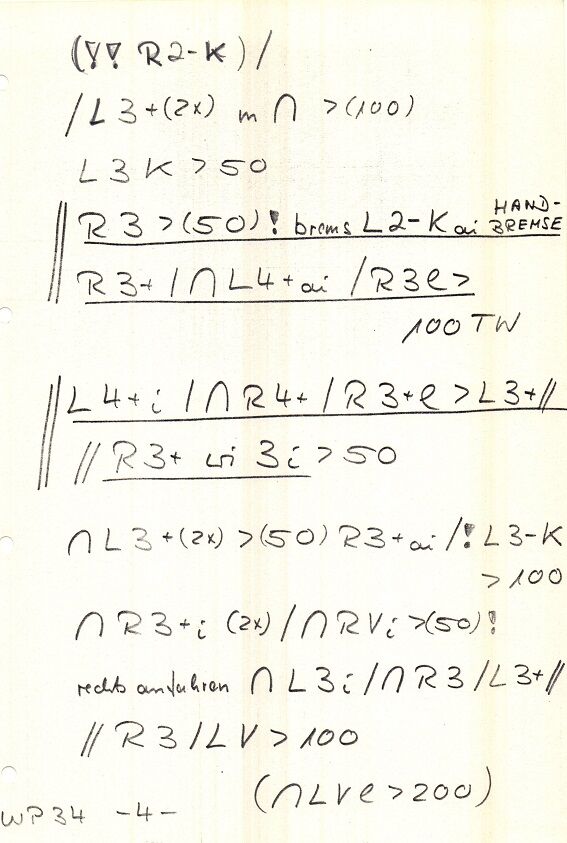 (!! R2-K) /
/ L3+(2x) m ∩ >(100)
L3K > 50
|| R3 >(50)! brems L2-K ai HAND-BREMSE
R3+ / ∩ L4+ai / R3e >
100 TW
|| L4+i / ∩ R4+ / R3+e > L3+ //
// R3+ wi 3i > 50
∩ L3+(2x) >(50) R3+ai / ! L3-K
> 100
∩ R3+i (2x) / ∩ RVi >(50)!
rechts anfahren ∩ L3i / ∩ R3 / L3+ //
// R3 / LV > 100
(∩ LVe > 200)
WP34 -4-